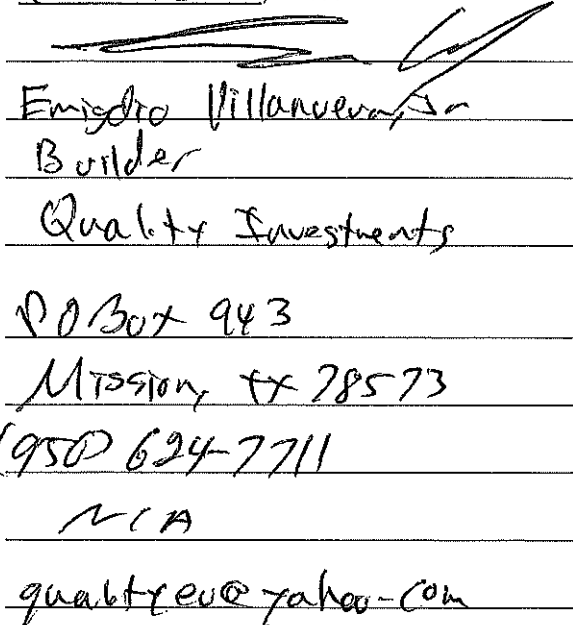 Emigdio Villanueva, Jr
Builder
Quality Investments
PO Box 943
Mission, tx 78573
(956) 624-7711
N/A
qualityev@yahoo.com